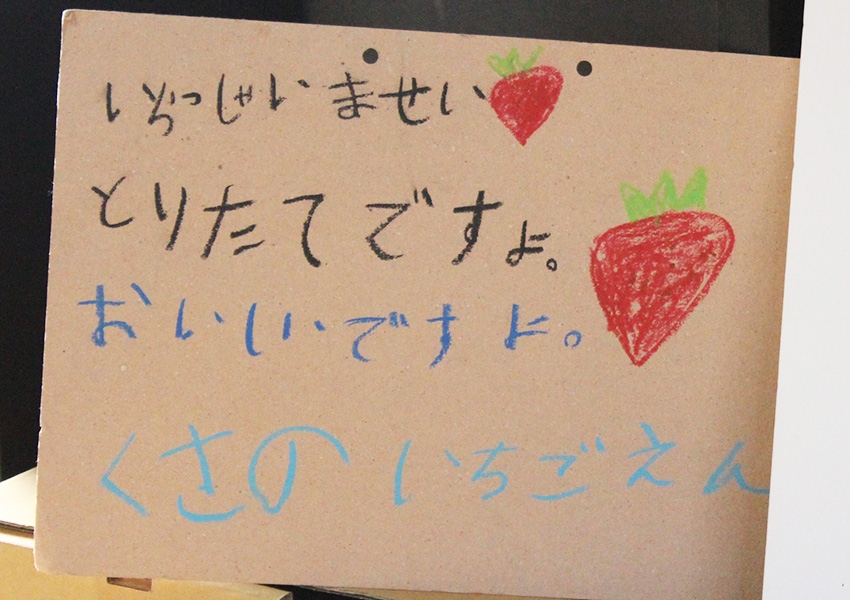 いらっしゃいませい
とりたてですよ。
おいしいですよ。
くさの いちごえん